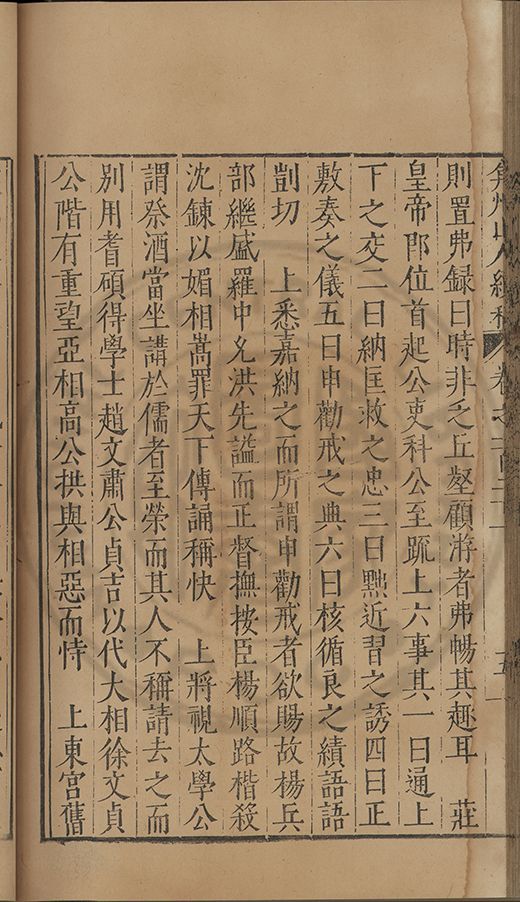 弇州山人續稿 卷之 五
則置弗録曰時非之丘壑顧游者弗暢其趣耳 莊
皇帝即位首起公吏科公至疏上六事其一曰通上
下之交二曰納匡救之忠三曰黜近習之誘四曰正
敷奏之儀五曰申勸戒之典六曰核循良之績語語
剴切 上悉嘉納之而所謂申勸戒者欲賜故楊兵
部繼盛羅中允洪先謚而正督撫按臣楊順路楷殺
沈鍊以媚相嵩罪天下傳誦稱快 上將視太學公
謂祭酒當坐講於儒者至榮而其人不稱請去之而
別用耆碩得學士趙文肅公貞吉以代大相徐文貞
公階有重望亞相高公拱與相惡而恃 上東宮舊